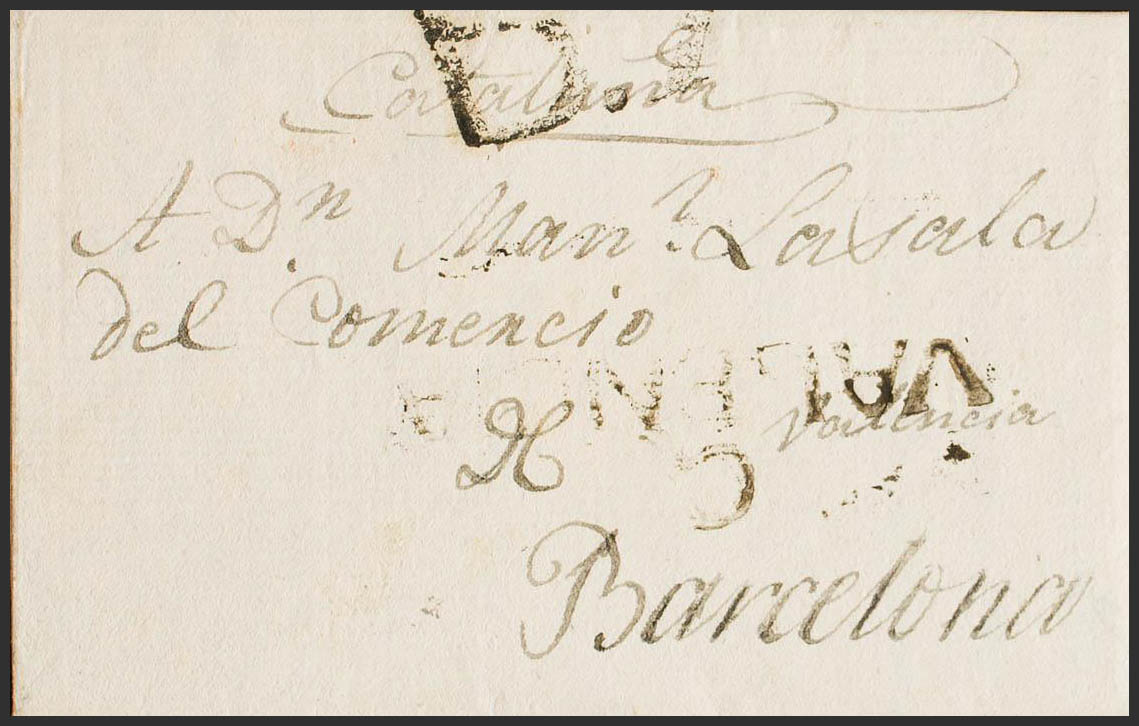 Cataluña
A Dn. Man.l Lasala
del Comencio
VALENCIA
Valencia
Barcelona